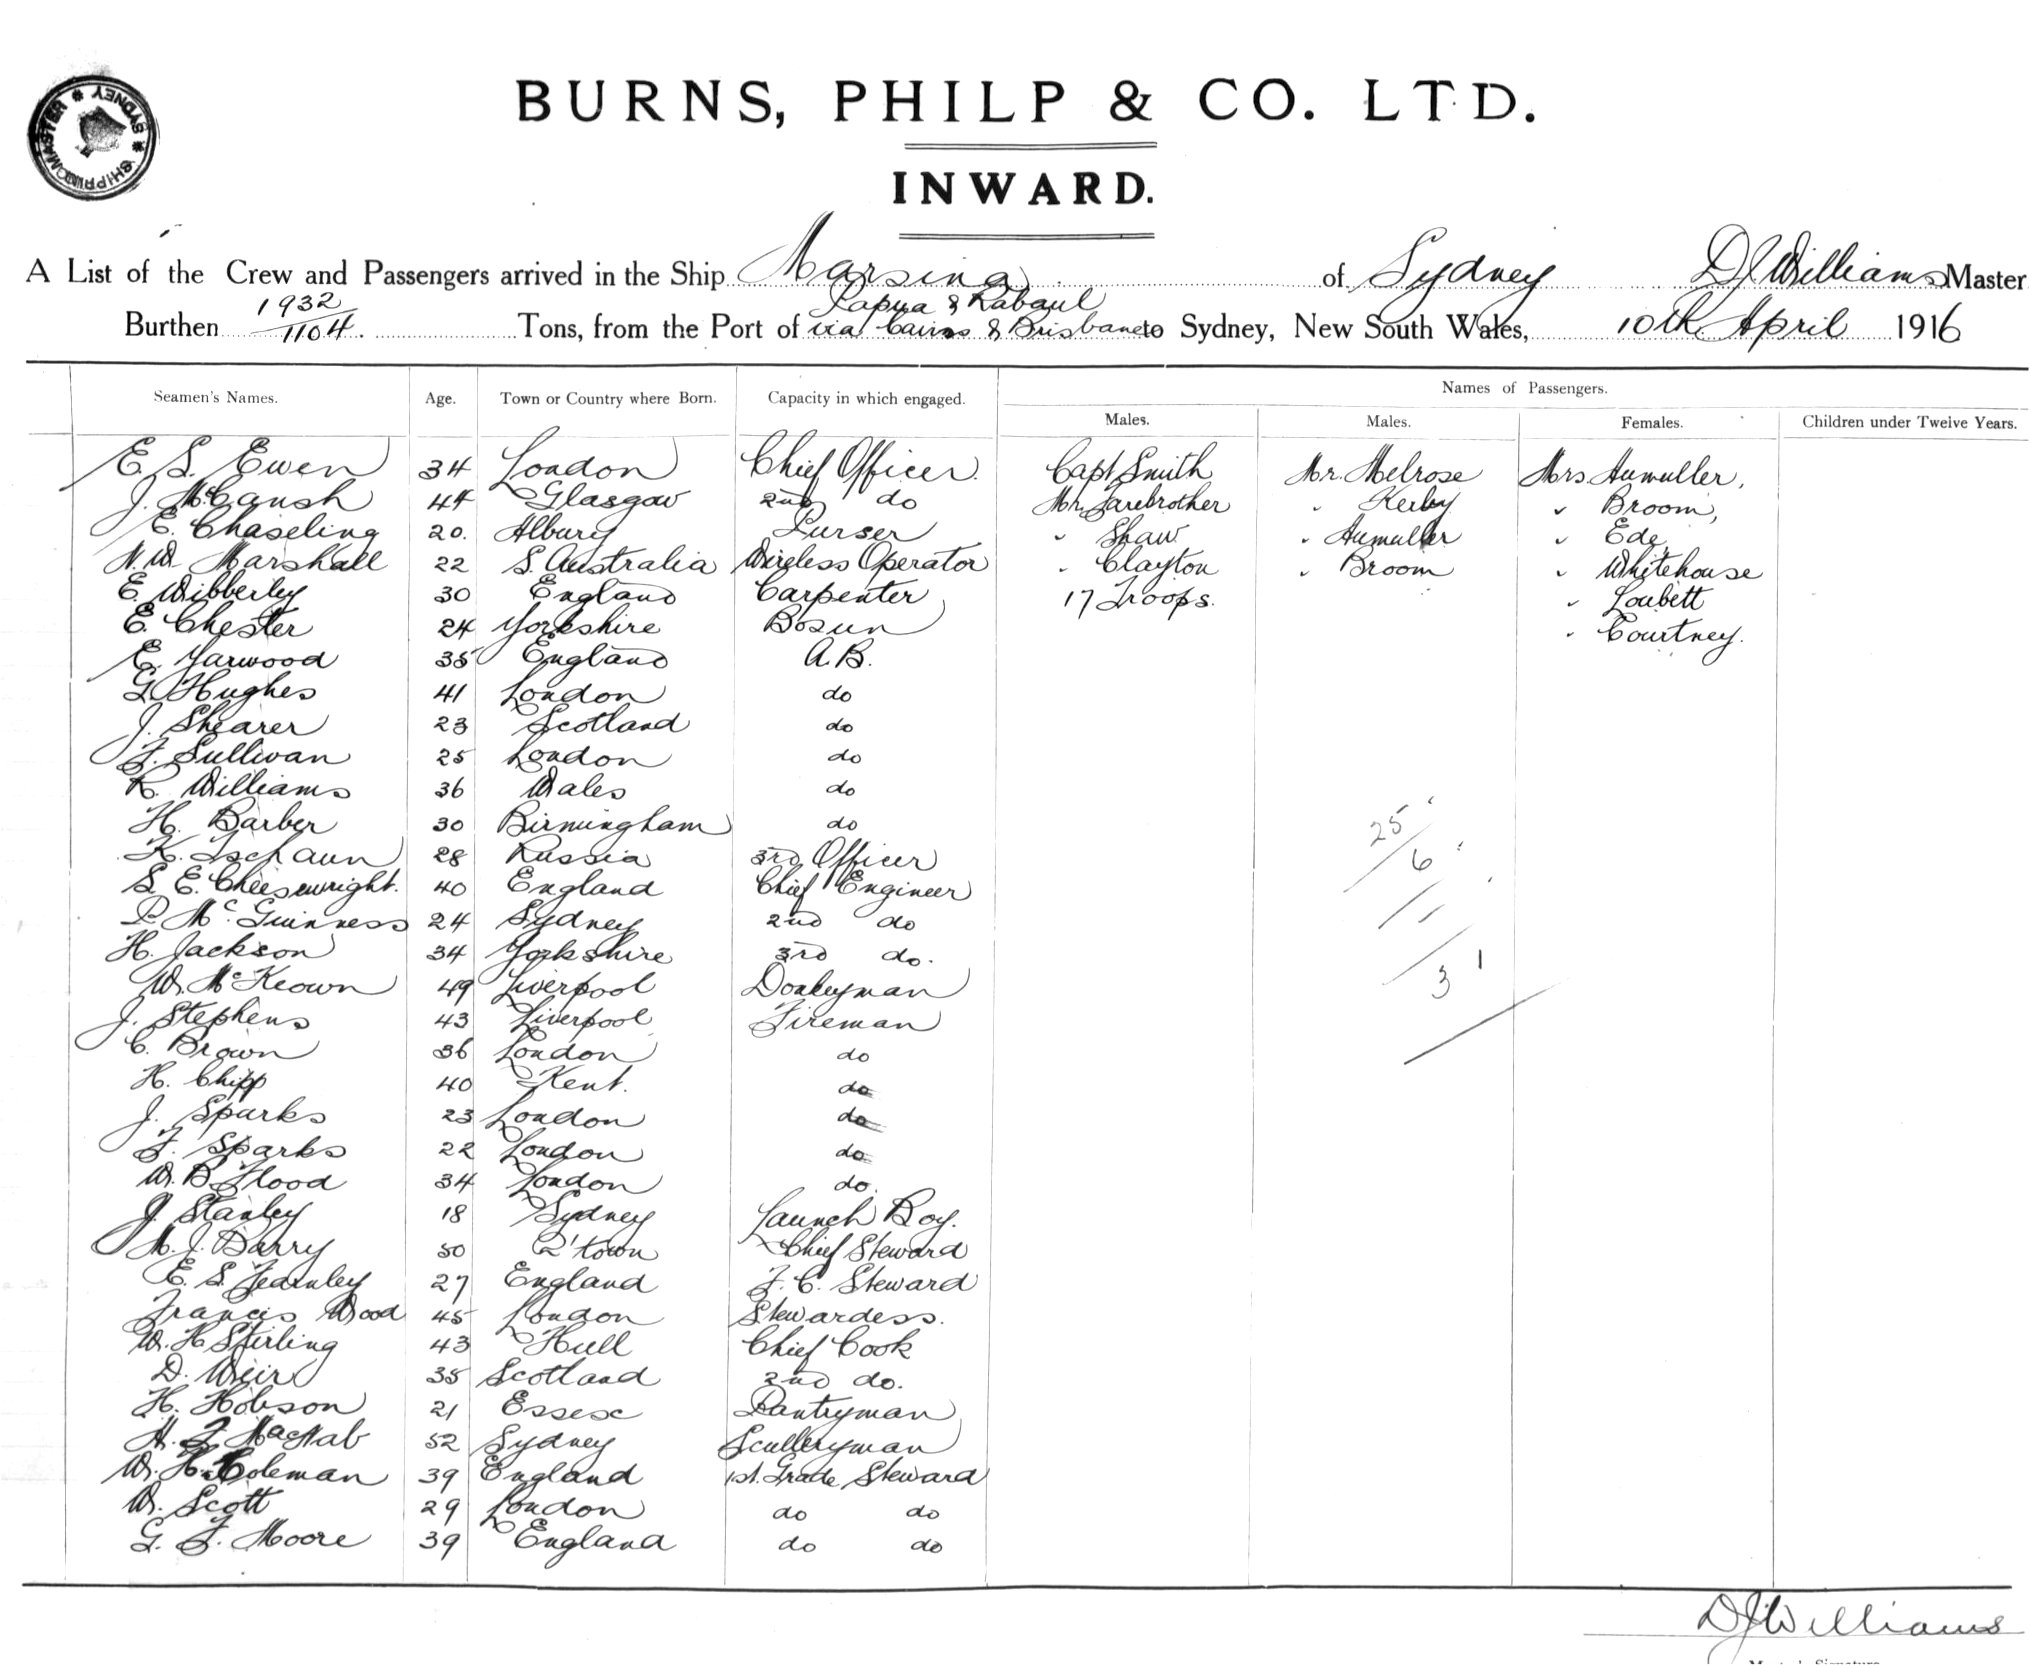 SHIPPING MASTER * SYDNEY *
BURNS, PHILP & CO. LTD.
INWARD.
A List of the Crew and Passengers arrived in the Ship Marsina of Sydney D J Williams Master
Burthen 1932/1104 Tons, from the Port of Papua & Rabaul via Cairns & Brisbane to Sydney, New South Wales, 10th April 1916
Names of Passengers.
Seamen's Names. Age. Town or Country where Born. Capacity in which engaged. Males. Males. Females. Children under Twelve Years.
E. S. Ewen 34 London Chief Officer. Capt Smith Mr. Melrose Mrs Aumuller,
J. McCansh 44 Glasgow 2nd do Mr. Farebrother " Kerby " Broom,
E. Chaseling 20. Albury Purser " Shaw " Aumuller " Ede,
N. W. Marshall 22 S. Australia Wireless Operator " Clayton " Broom " Whitehouse
E. Wibberley 30 England Carpenter 17 Troops. " Loubett
E. Chester 24 Yorkshire Bosun " Courtney.
E. Yarwood 35 England A.B.
G. Hughes 41 London do
J. Shearer 23 Scotland do
F. Sullivan 25 London do
R. Williams 36 Wales do
H. Barber 30 Birmingham do
25
K. Tschaun 28 Russia 3rd Officer 6
S. E. Cheeswright. 40 England Chief Engineer
P. McGuinness 24 Sydney 2nd do
H. Jackson 34 Yorkshire 3rd do. 1
W. McKeown 49 Liverpool Donkeyman 3
J. Stephens 43 Liverpool Fireman
C. Brown 36 London do
H. Chipp 40 Kent. do
J. Sparks 23 London do
F. Sparks 22 London do
W. B. Flood 34 London do.
J. Stanley 18 Sydney Launch Boy.
M. J. Barry 50 Q'town Chief Steward
E. S. Fearnley 27 England F. C. Steward
Francis Wood 45 London Stewardess.
W. H. Stirling 43 Hull Chief Cook
D. Weir 35 Scotland 2nd do.
H. Hobson 21 Essex Pantryman
H. F. MacNab 52 Sydney Sculleryman
W. H. Coleman 39 England 1st. Grade Steward
W. Scott 29 London do do
G. F. Moore 39 England do do
D J Williams